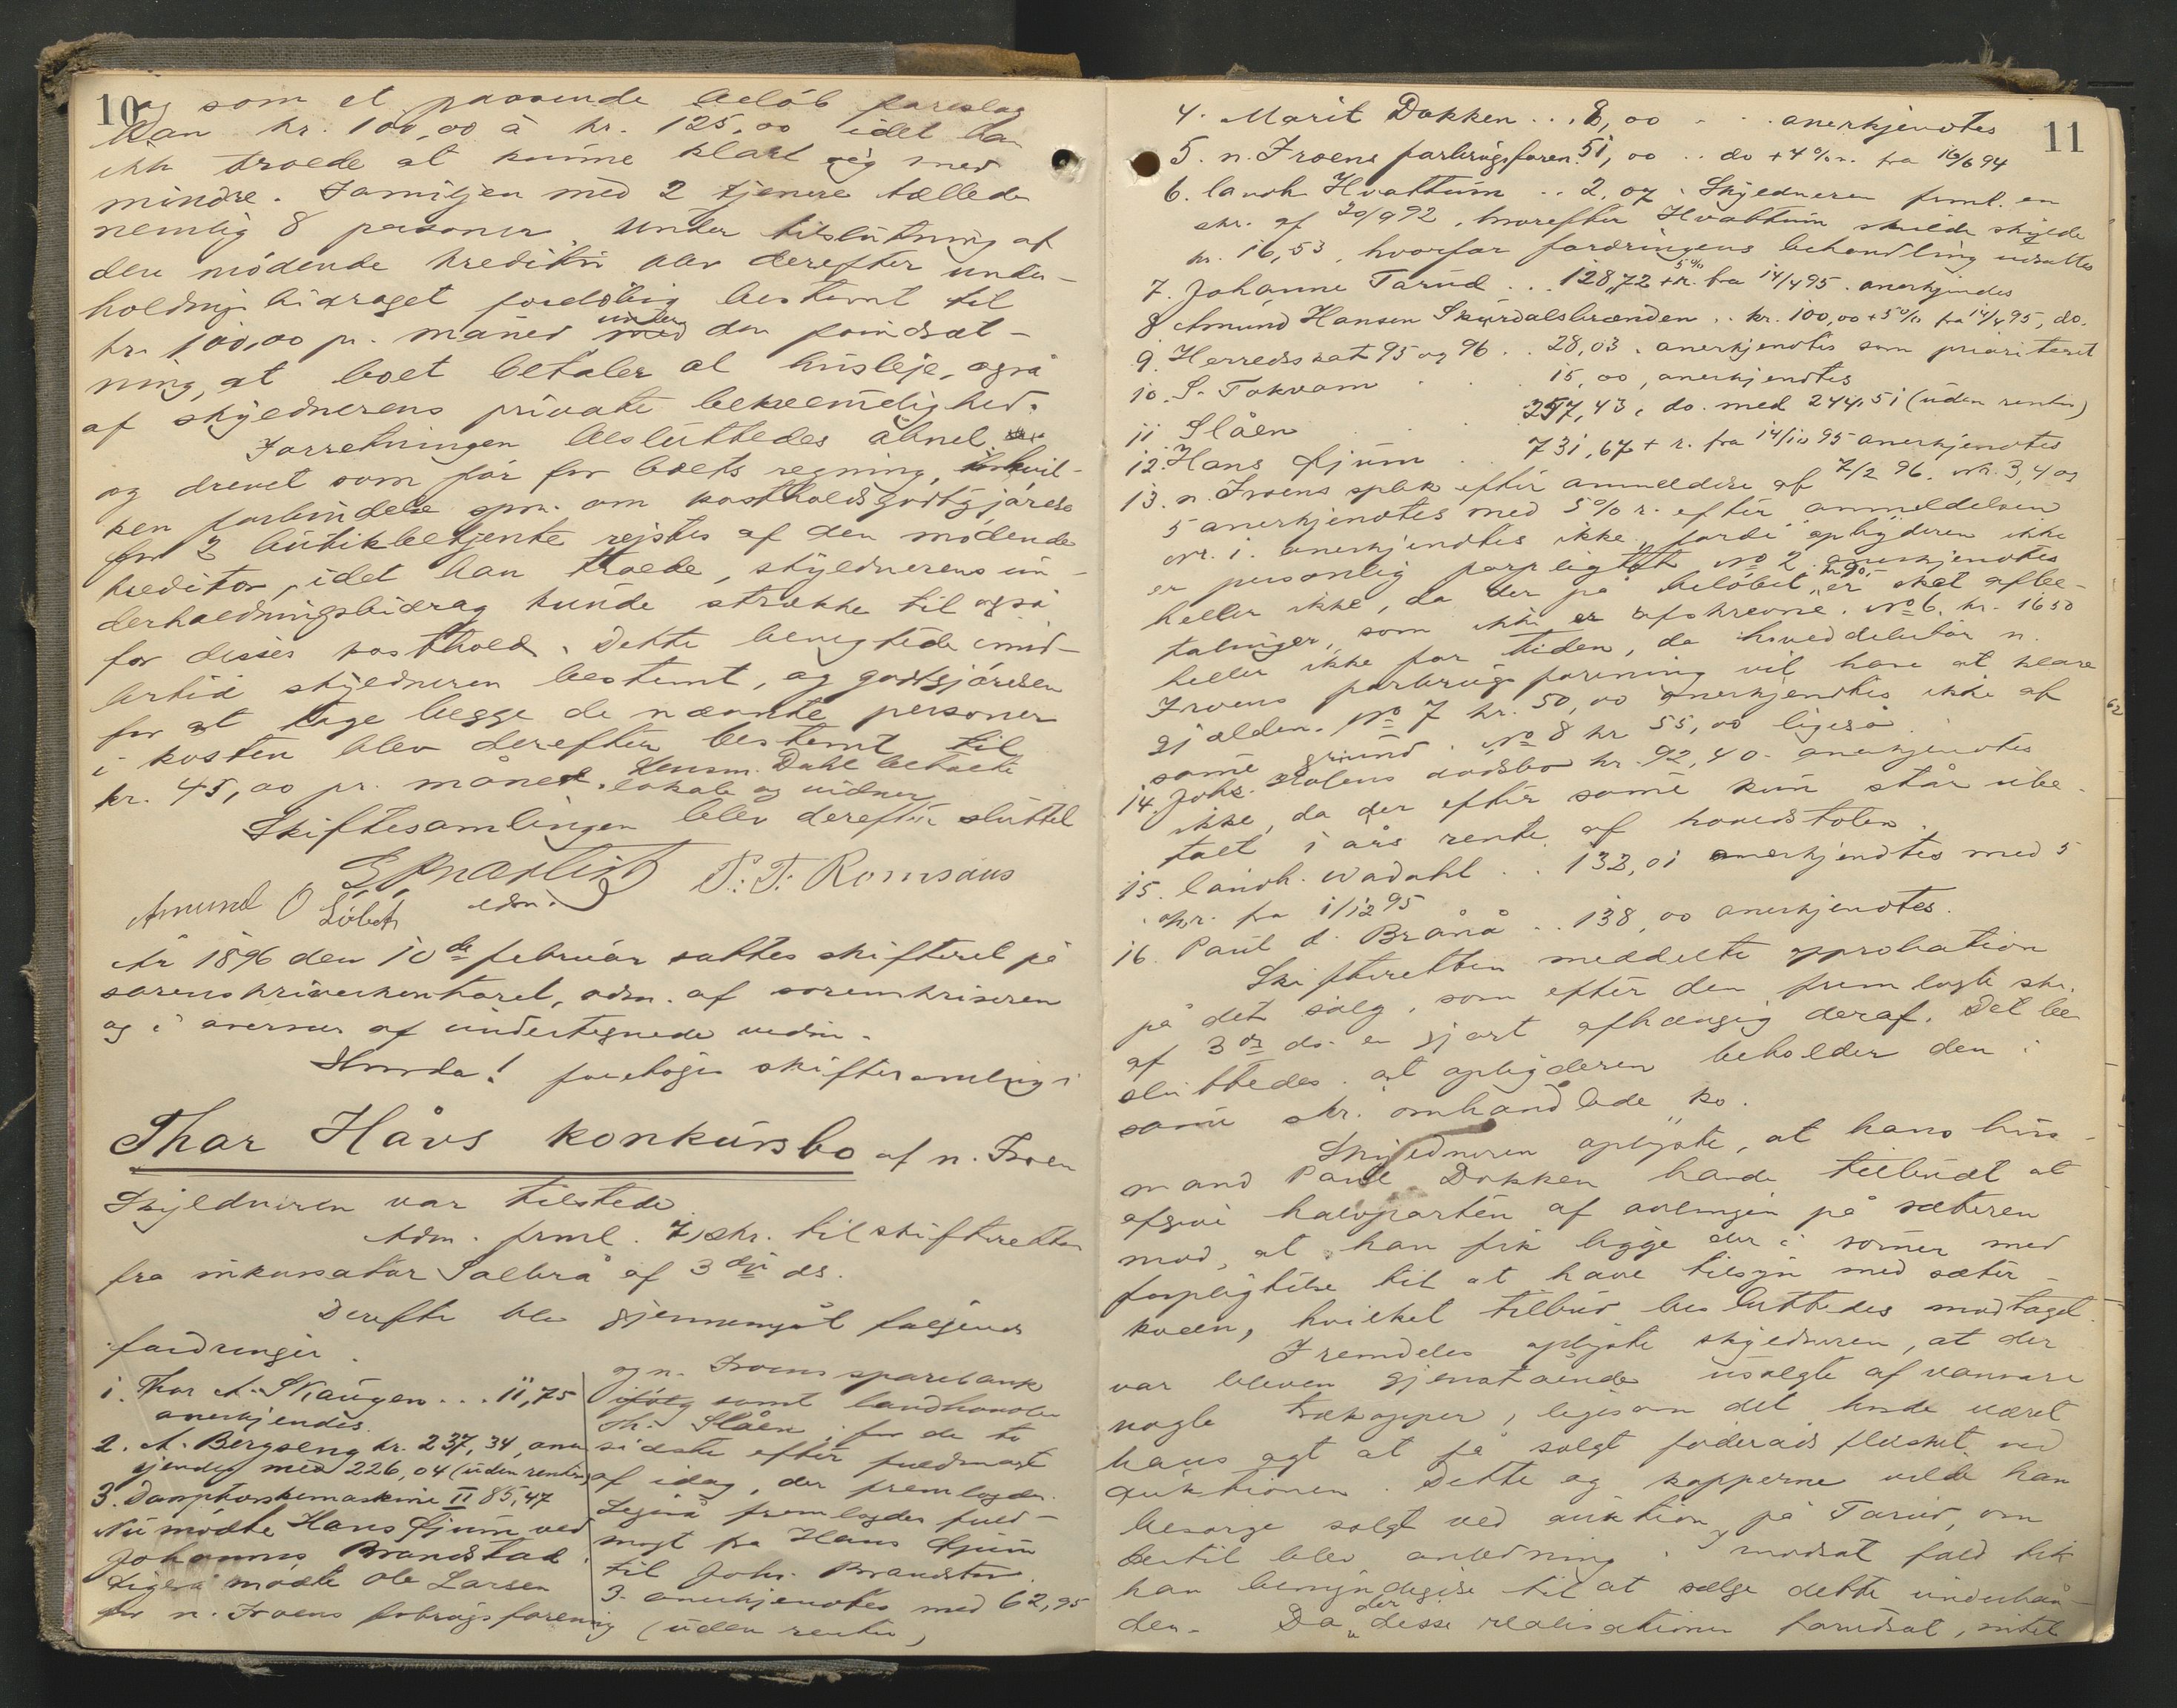 10
og som et passende beløb foreslog
han kr. 100,00 à kr. 125,00 idet han
ikke troede at kunne klare sig med
mindre. Familjen med 2 tjenere tællede
nemlig 8 personer. Under tilslutning af
den mødende kreditor blev derefter under-
holdnings bidraget foreløbig bestemt til
kr. 100,00 pr. måned med under den forudsæt-
ning, at boet betaler al husleje, også
af skyldnerens private bekvemmelighed.
Forretningen besluttedes åbnet
og drevet som før for boets regning, i hvil-
ken forbindelse spm. om kostholdsgodtgjørelse
for 2 butikbetjente rejstes af den mødende
kreditor, idet han troede, skyldnerens un-
derholdningsbidrag kunde strække til også
for disses kosthold. Dette benegtede imid-
lertid skyldneren bestemt, og godtgjørelsen
for at tage begge de nævnte personer
i kosten blev derefter bestemt til
kr. 45,00 pr. måned. Lensm. Dahl betalte
lokale og vidner
Skiftesamlingen blev derefter sluttet
P. T. Romsaas
Amund O
edsv.
År 1896 den 10de februar sattes skifteret på
sorenskriverkontoret, adm. af sorenskriveren
og i overvær af undertegnede vidn.
Hvorda! foretoges skiftesamling i
Thor Håvs konkursbo af n. Froen
Skyldneren var tilstede
Adm. freml. 7, skr. til skifteretten
fra inkassator Saelbrå af 3die ds.
Derefter blev gjennemgåt følgende
fordringer.
1. Thor A. Skaugen . . . 11,75
anerkjendes.
2. A. Bergseng kr. 237,34, aner
kjendes med 226,04 (uden renter)
3. Damptærskemaskine II 85,47
Nu mødte Hans Gjum ved
Johannes Brandstad
Ligeså mødte Ole Larsen
for n. Froens forbrugsforening
og n. Froens sparebank
ifølg samt landhandler
Th. Slåen, for de to
sidste efter fuldmagt
af idag, der fremlagdes.
Ligeså fremlagdes fuld-
magt fra Hans Gjum
til Johs. Brandstad.
3. anerkjendtes med 62,95
(uden renter)
11
4. Marit Dokken . . . 8,00 - - . anerkjendtes
5. n. Froens forbrugsforen. 51,00 . . do + 4 % r. fra 16/6 94
6. landh. Hvattum . . 2,07. Skyldneren freml. en
skr. af 20/9 92, hvorefter Hvattum skulde skylde
kr. 16,53, hvorfor fordringens behandling udsattes
7. Johanne Tarud . . . 128,72 + 5 % r. fra 14/4 95. anerkjendes
8 Amund Hansen Skurdalsbrænden . . kr. 100,00 + 5 % fra 14/4 95, do.
9. Herredsskat 95 og 96 . . 28,03. anerkjendtes som prioriteret
10. S. Tokvam . . . 15,00, anerkjendtes
11 Slåen . . . 257,43, do. med 244,51 (uden renter)
12. Hans Gjum . . 731,67 + r. fra 14/10 95 anerkjendtes
13. n. Froens spbk efter anmeldelse af 7/2 96. Nr. 3, 4 og
5 anerkjendtes med 5 % r. efter anmeldelsen
Nr. 1. anerkjendtes ikke, fordi opbyderen ikke
er personlig forpligtet No 2 anerkjendtes
heller ikke, da der på beløbet kr. 90,- er sket afbe-
talinger, som ikke er afskrevne. No 6. kr. 1650
heller ikke for tiden, da hoveddebitor n.
Froens forbrugsforening vil have at klare
gjælden. No 7 kr. 50,00 anerkjendtes ikke af
samme grund. No 8 kr 55,00 ligeså.
14. Johs. Stolens dødsbo kr. 92,40. anerkjendtes
ikke, da der efter samme kun står ube-
talt 1 års rente af hovedstolen.
15. landh. Wadahl . . 132,01 anerkjendtes med 5
% r. fra 1/12 95
16. Paul d. Brånå . . 138,00 anerkjendtes.
Skifteretten meddelte approbation
på det salg, som efter den fremlagte skr.
af 3die ds. er gjort afhængig deraf. Det be
sluttedes at opbyderen beholder den i
samme skr. omhandlede ko.
Skyldneren oplyste, at hans hus-
mand Paul Dokken havde tilbudt at
afgive halvparten af avlingen på sæteren
mod, at han fik ligge der i sommer med
forpligtelse til at have tilsyn med sæter-
kveen, hvilket tilbud besluttedes modtaget.
Fremdeles oplyste skyldneren, at der
var bleven gjenstående usolgte af vanvare
nogle trækopper, ligesom det havde været
hans agt at få solgt føderåds flesket ved
auktionen. Dette og kopperne vilde han
besørge solgt ved auktion på Tarud, om
dertil blev anledning. I modsat fald fik
han bemyndigelse til at sælge dette underhån-
den. Da der disse realisationer forudsat, intet
62